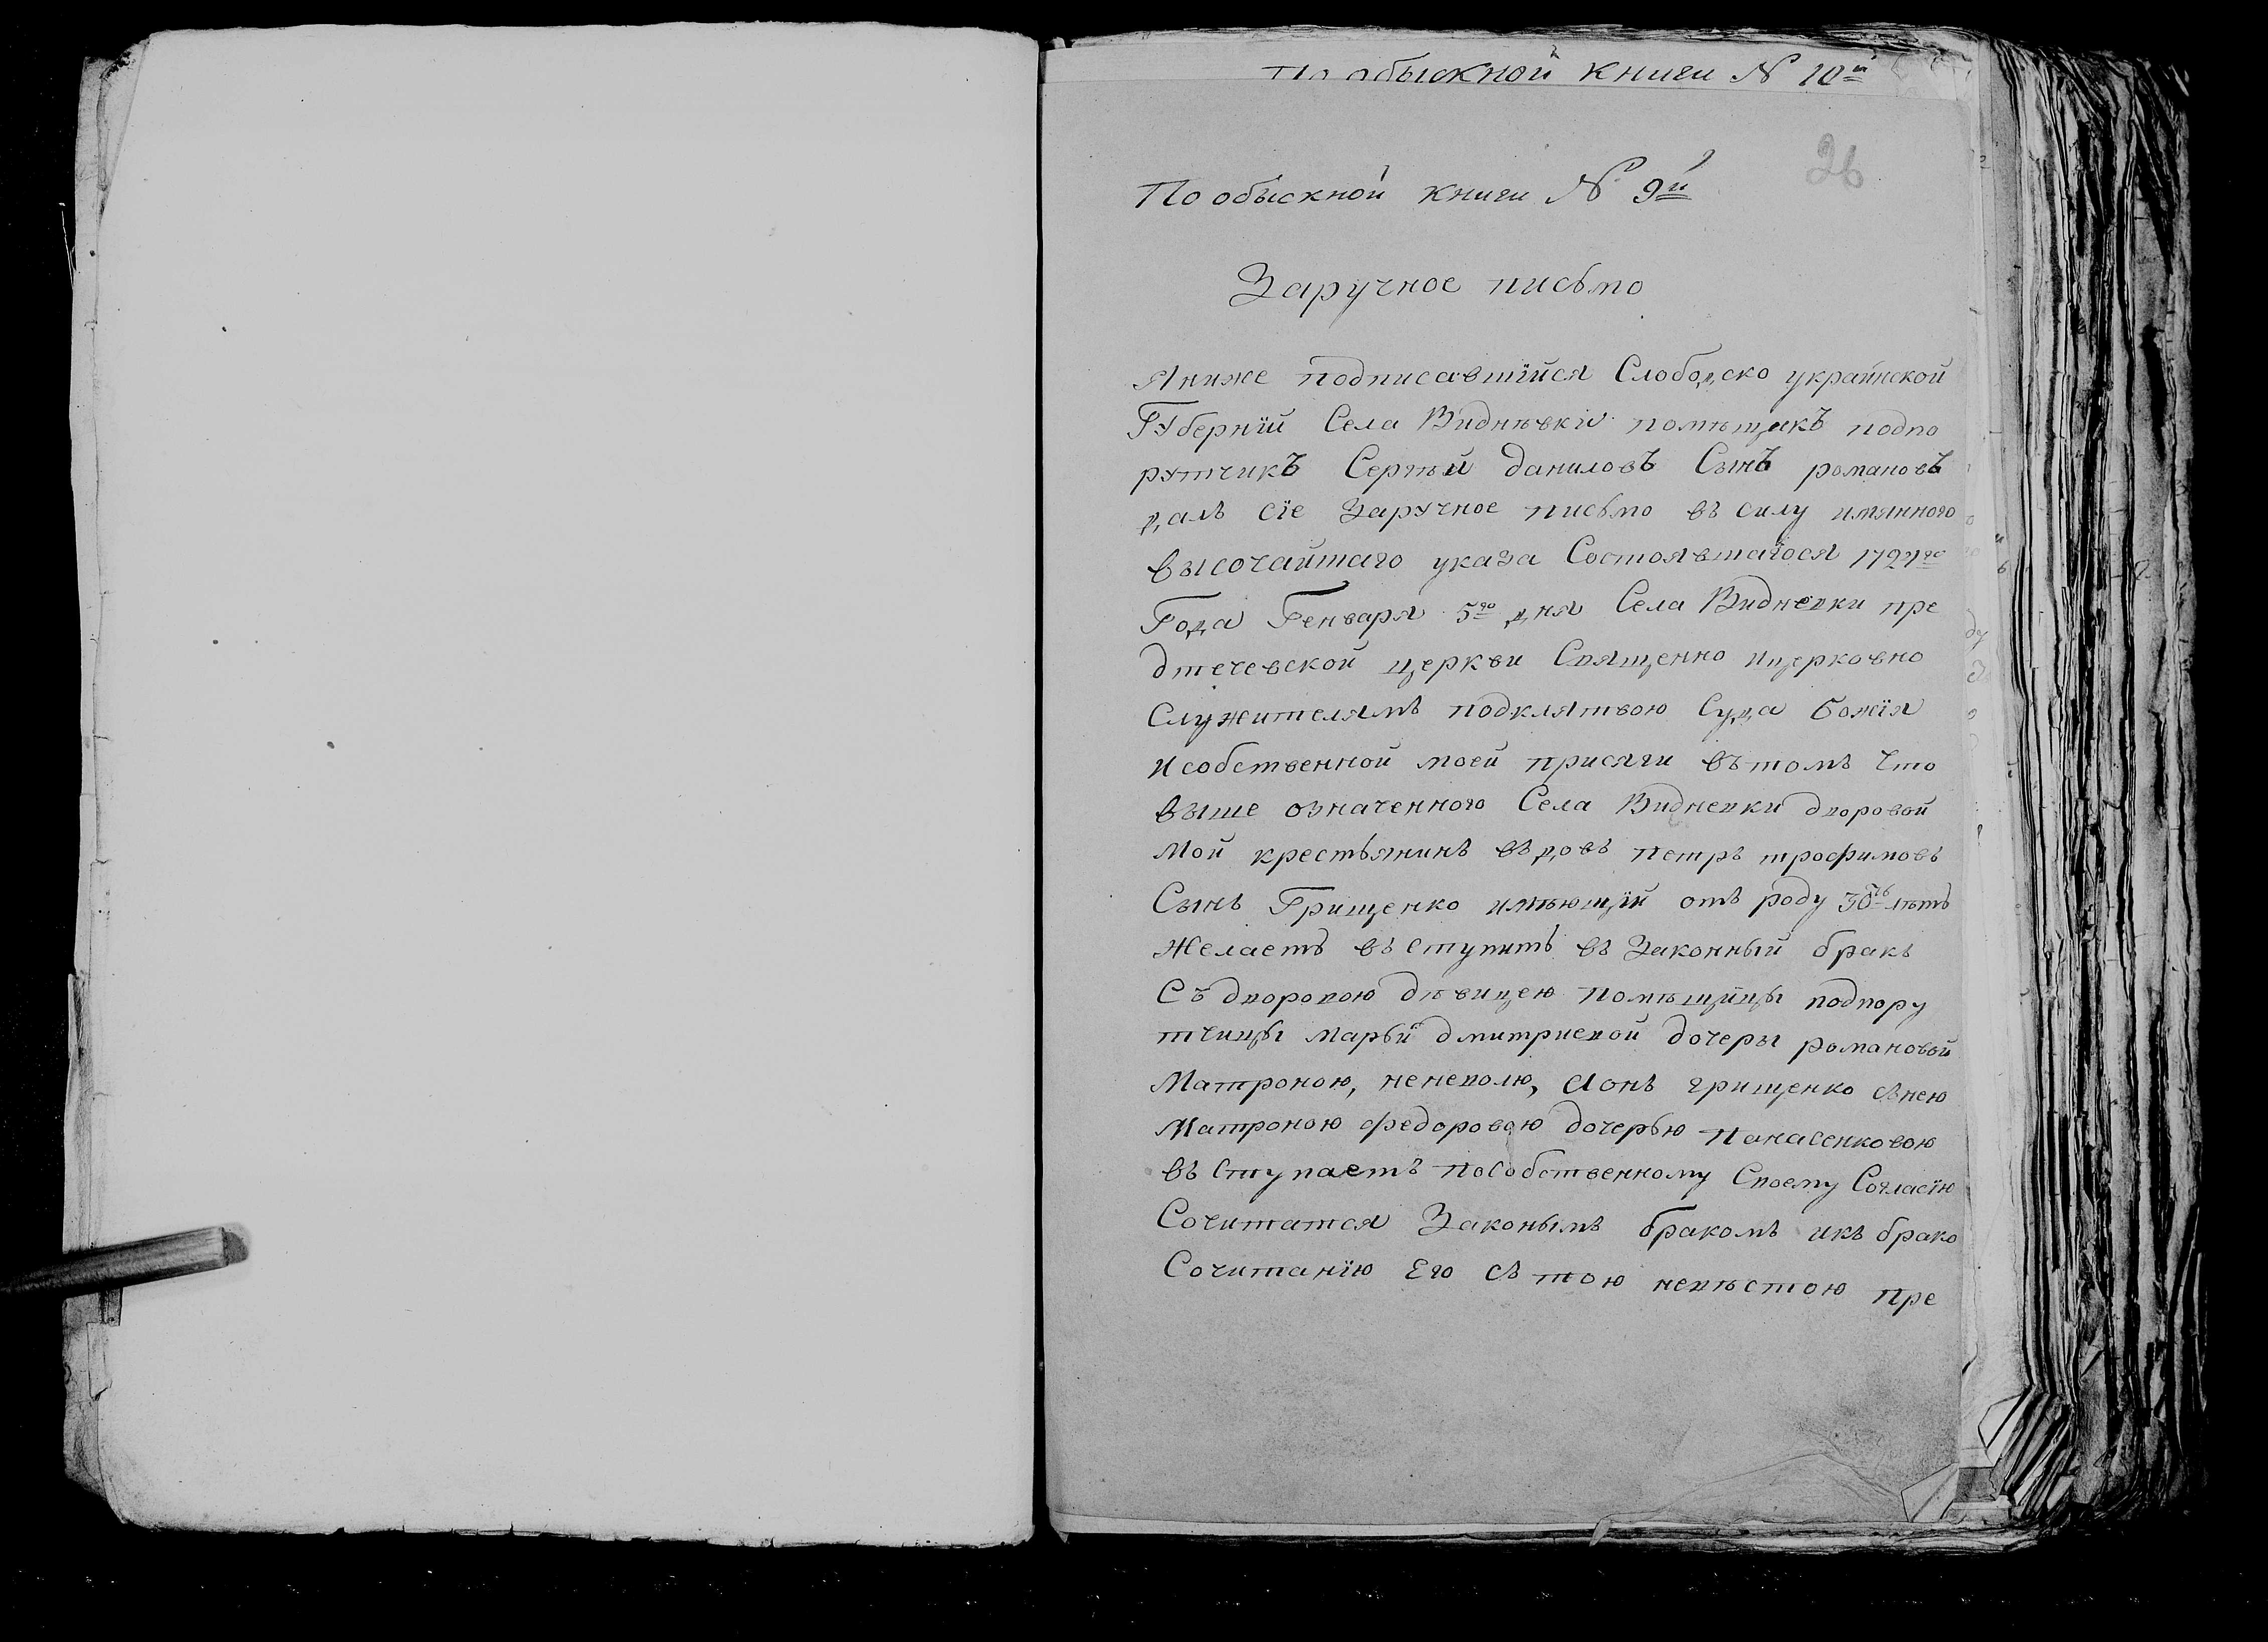 По обыскной книги N 10й
26
По обыскной книги N 9й
Заручное письмо
Я ниже подписавшійся Слободско украинской
Губерніи Села Виднѣвки помѣщикъ подпо
рутчикъ Сергѣй даниловъ Сынъ романовъ
далъ сіе Заручное письмо въ силу имянного
высочайшаго указа Состоявшагося 1724го
Года Генваря 5го дня Села Видневки пре
дтечевской церкви Священно ицерковно
Служителямъ подклятвою Суда Божія
и собственной моей присяги вътомъ что
выше означенного Села Видневки дворовой
мой крестьянинъ въдовъ петръ трофимовъ
Сынъ Грищенко имѣющій отъ роду 30ть лѣтъ
желаетъ въступить въ Законный бракъ
Съ дворовою дѣвицею помѣщицы подпору
тчицы марьи дмитриевой дочеры романовой
Матроною, неневолю, а онъ грищенко снею
Матроною федоровою дочерью панасенковою
въступаетъ пособственному Своему Согласію
Сочитатся Законымъ бракомъ икъ брако
Сочитанію Его съ тою невѣстою пре